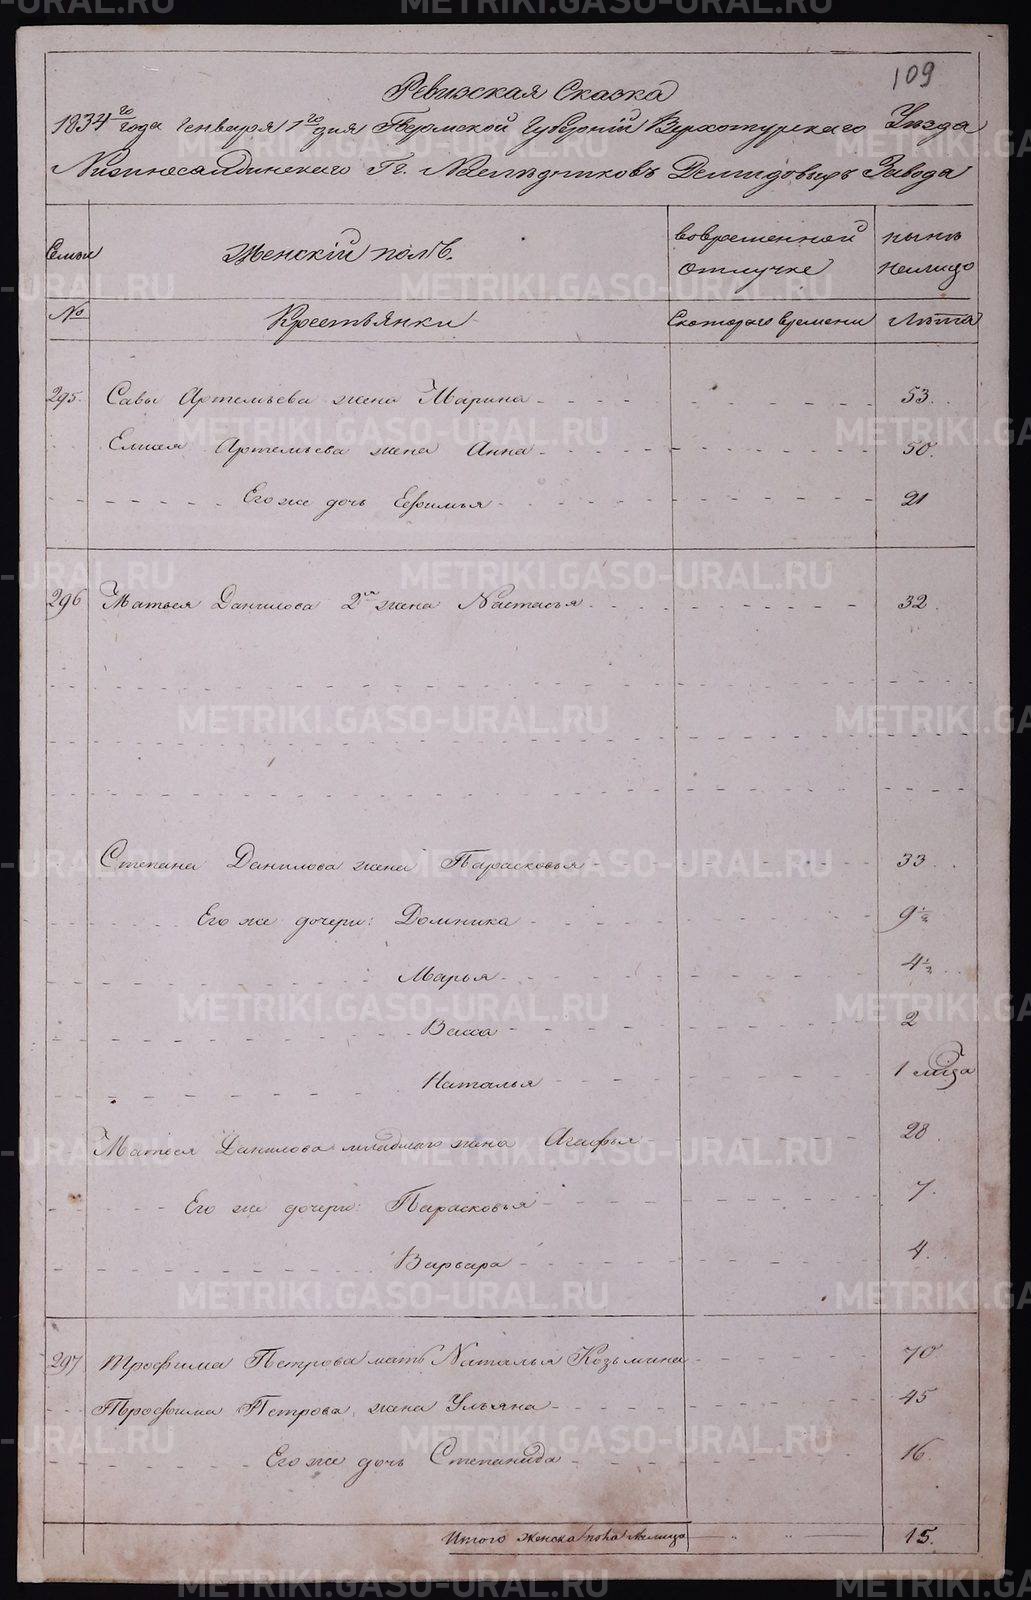 109
Ревизская Сказка
1834го года Генваря 1го дня Пермской Губернiй Верхотурскаго Уезда
Нижнесалдинскаго Гг. Наследниковъ Демидовыхъ Завода
Семьи Женскiй полъ. вовременной отлучке ныне налицо
№ Крестьянки Скотораго времени Лѣта
295. Савы Артемьева жена Марина 53.
Елисея Артемьева жена Анна 50.
Его же дочь Евфимья 21
296 Матвея Данилова 2я жена Настасья 32.
Степана Данилова жена Парасковья 33
Его же дочери: Домника 9 1/2
Марья 4 1/2
Васса 2
Наталья 1 мца
Матвея Данилова младшаго жена Агафья 28.
Его же дочери: Парасковья 7.
Варвара 4.
297 Трофима Петрова мать Наталья Козьмина 70
Трофима Петрова жена Ульяна 45
Его же дочь Степанида 16.
Итого женска пола налицо 15.
METRIKI.GASO-URAL.RU